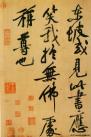 東坡或見此書應
笑我於無佛處
稱尊也